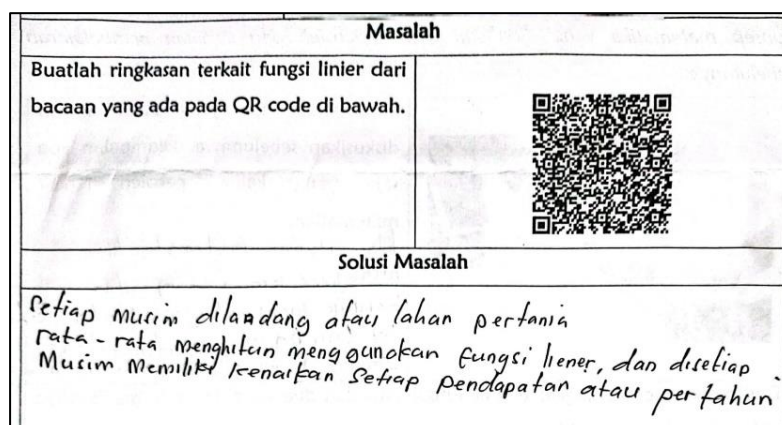 Masalah
Buatlah ringkasan terkait fungsi linier dari
bacaan yang ada pada QR code di bawah.
Solusi Masalah
Setiap musim diladang atau lahan pertania
rata-rata menghitun menggunakan fungsi liener, dan disetiap
Musim Memiliki kenaikan Setiap pendapatan atau pertahun